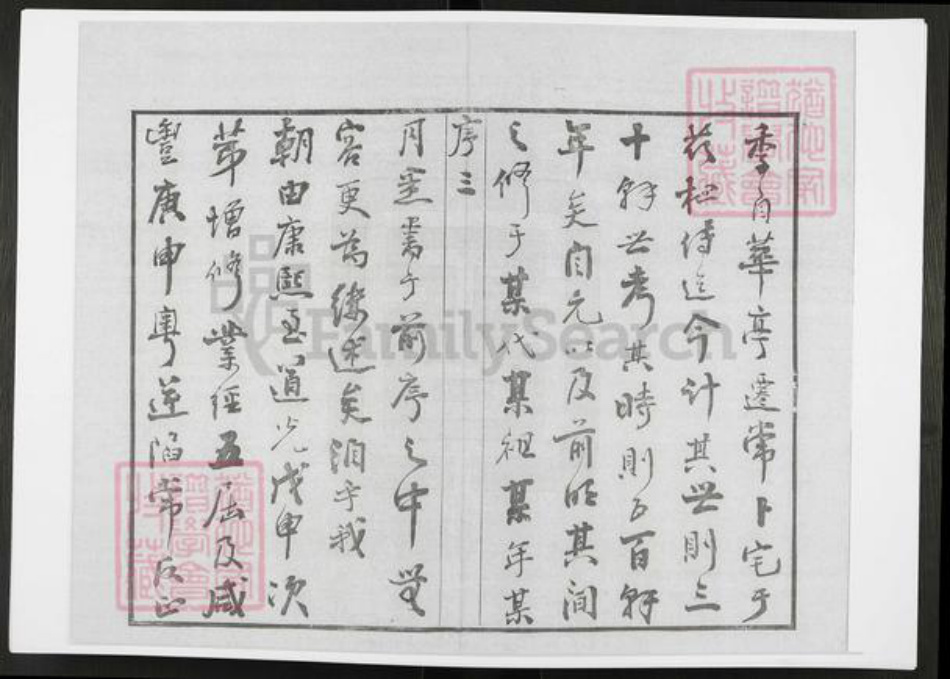 季自華亭遷常卜宅于
茲相傳迄今計其世則三
十餘世考其時則五百餘
年矣自元以及前明其間
之修于某代某祖某年某
序三
月悉書于前序之中無
容更為縷述矣洎乎我
朝由康熙至道光戊申次
第增修業經五屆及咸
豐庚申粵逆陷常江正
FamilySearch